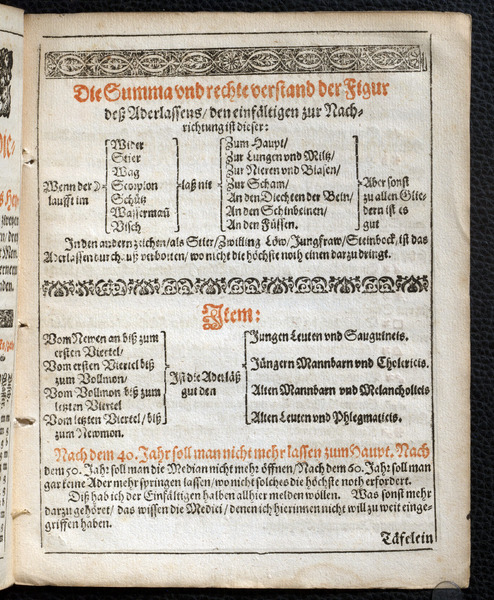 Die Summa vnd rechte verstand der Figur
deß Aderlassens/ den einfältigen zur Nach-
richtung ist dieser:
Wenn der ☽
laufft im
Wider
Steier
Wag
Scorpion
Schütz
Wassermañ
Visch
laß nit
Zum Haupt/
Zur Lungen vnd Miltz/
Zur Nieren vnd Blasen/
Zur Scham/
An den Diechten der Bein/
An den Schinbeinen/
An den Füssen.
Aber sonst
zu allen Glie-
dern ist es
gut
In den andern zeichen/ als Stier/ Zwilling Löw/ Jungfraw/ Steinbock/ ist das
Aderlassen durchauß verbotten/ wo nicht die höchste noth einen darzu dringt.
Item:
Vom Newen an biß zum
ersten Viertel/
Vom ersten Viertel biß
zum Vollmon/
Vom Vollmon biß zum
letzten Viertel
Vom letzten Viertel/ biß
zum Newmon.
Ist die Aderläß
gut den
Jungen Leuten vnd Sauguineis.
Jüngern Mannbarn vnd Cholericis.
Alten Mannbarn vnd Melancholicis
Alten Leuten vnd Phlegmaticis.
Nach dem 40. Jahr soll man nicht mehr lassen zum Haupt. Nach
dem 50. Jahr soll man die Median nicht mehr öffnen/ Nach dem 60. Jahr soll man
gar keine Ader mehr springen lassen/ wo nicht solches die höchste noth erfordert.
Diß hab ich der Einfältigen halben allhier melden wöllen. Was sonst mehr
darzu gehöret/ das wissen die Medici/ denen ich hierinnen nicht will zu weit einge-
griffen haben.
Täfelein